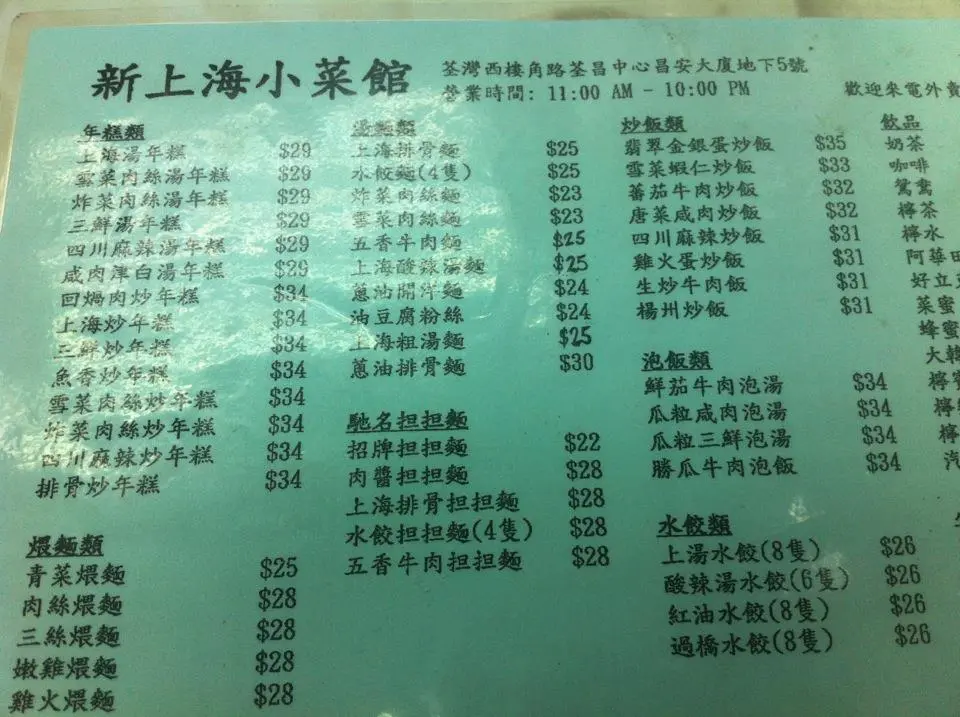 新上海小菜館
荃灣西樓角路荃昌中心昌安大廈地下5號
營業時間: 11:00 AM - 10:00 PM
歡迎來電外賣
年糕類
上海湯年糕 $29
雪菜肉絲湯年糕 $29
炸菜肉絲湯年糕 $29
三鮮湯年糕 $29
四川麻辣湯年糕 $29
咸肉津白湯年糕 $29
回焗肉炒年糕 $34
上海炒年糕 $34
三鮮炒年糕 $34
魚香炒年糕 $34
雪菜肉絲炒年糕 $34
炸菜肉絲炒年糕 $34
四川麻辣炒年糕 $34
排骨炒年糕 $34
煨麵類
青菜煨麵 $25
肉絲煨麵 $28
三絲煨麵 $28
嫩雞煨麵 $28
雞火煨麵 $28
湯麵類
上海排骨麵 $25
水餃麵(4隻) $25
炸菜肉絲麵 $23
雪菜肉絲麵 $23
五香牛肉麵 $25
上海酸辣湯麵 $25
蔥油開洋麵 $24
油豆腐粉絲 $24
上海粗湯麵 $25
蔥油排骨麵 $30
馳名担担麵
招牌担担麵 $22
肉醬担担麵 $28
上海排骨担担麵 $28
水餃担担麵(4隻) $28
五香牛肉担担麵 $28
炒飯類
翡翠金銀蛋炒飯 $35
雪菜蝦仁炒飯 $33
蕃茄牛肉炒飯 $32
唐菜咸肉炒飯 $32
四川麻辣炒飯 $31
雞火蛋炒飯 $31
生炒牛肉飯 $31
楊州炒飯 $31
泡飯類
鮮茄牛肉泡湯 $34
瓜粒咸肉泡湯 $34
瓜粒三鮮泡湯 $34
勝瓜牛肉泡飯 $34
水餃類
上湯水餃(8隻) $26
酸辣湯水餃(6隻) $26
紅油水餃(8隻) $26
過橋水餃(8隻) $26
飲品
奶茶
咖啡
鴛鴦
檸茶
檸水
阿華田
好立
菜蜜
蜂蜜
大韓
檸
檸
檸
汽